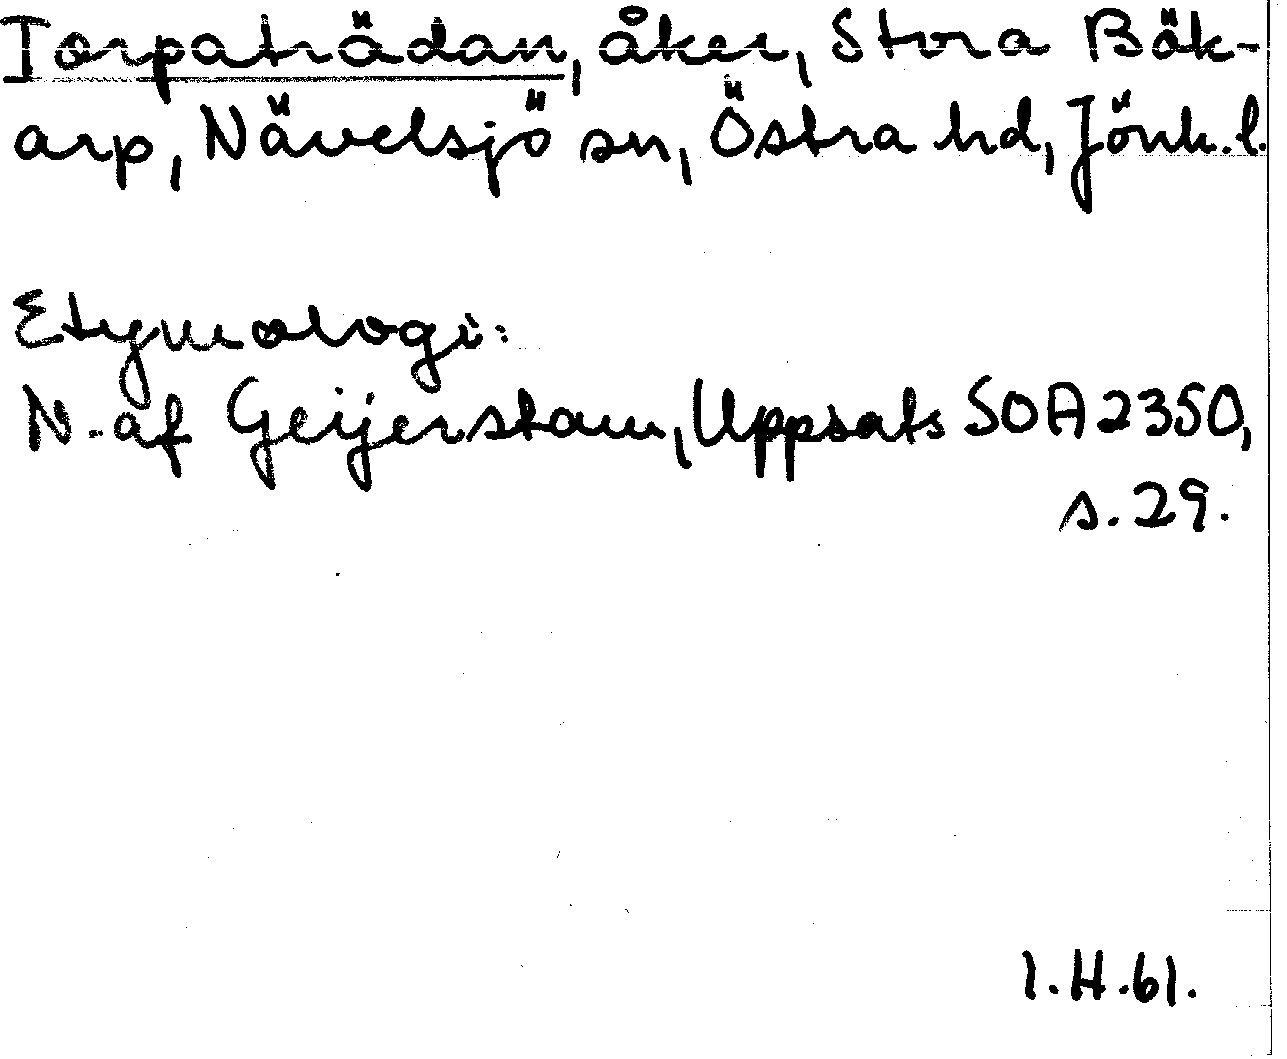 Torpaträdan, åker, Stora Bök-
arp, Nävelsjö sn, Östra hd, Jönk. l.
Etymologi:
N. af Geijerstam, Uppsats SOA 2350,
s. 29.
I.H.61.